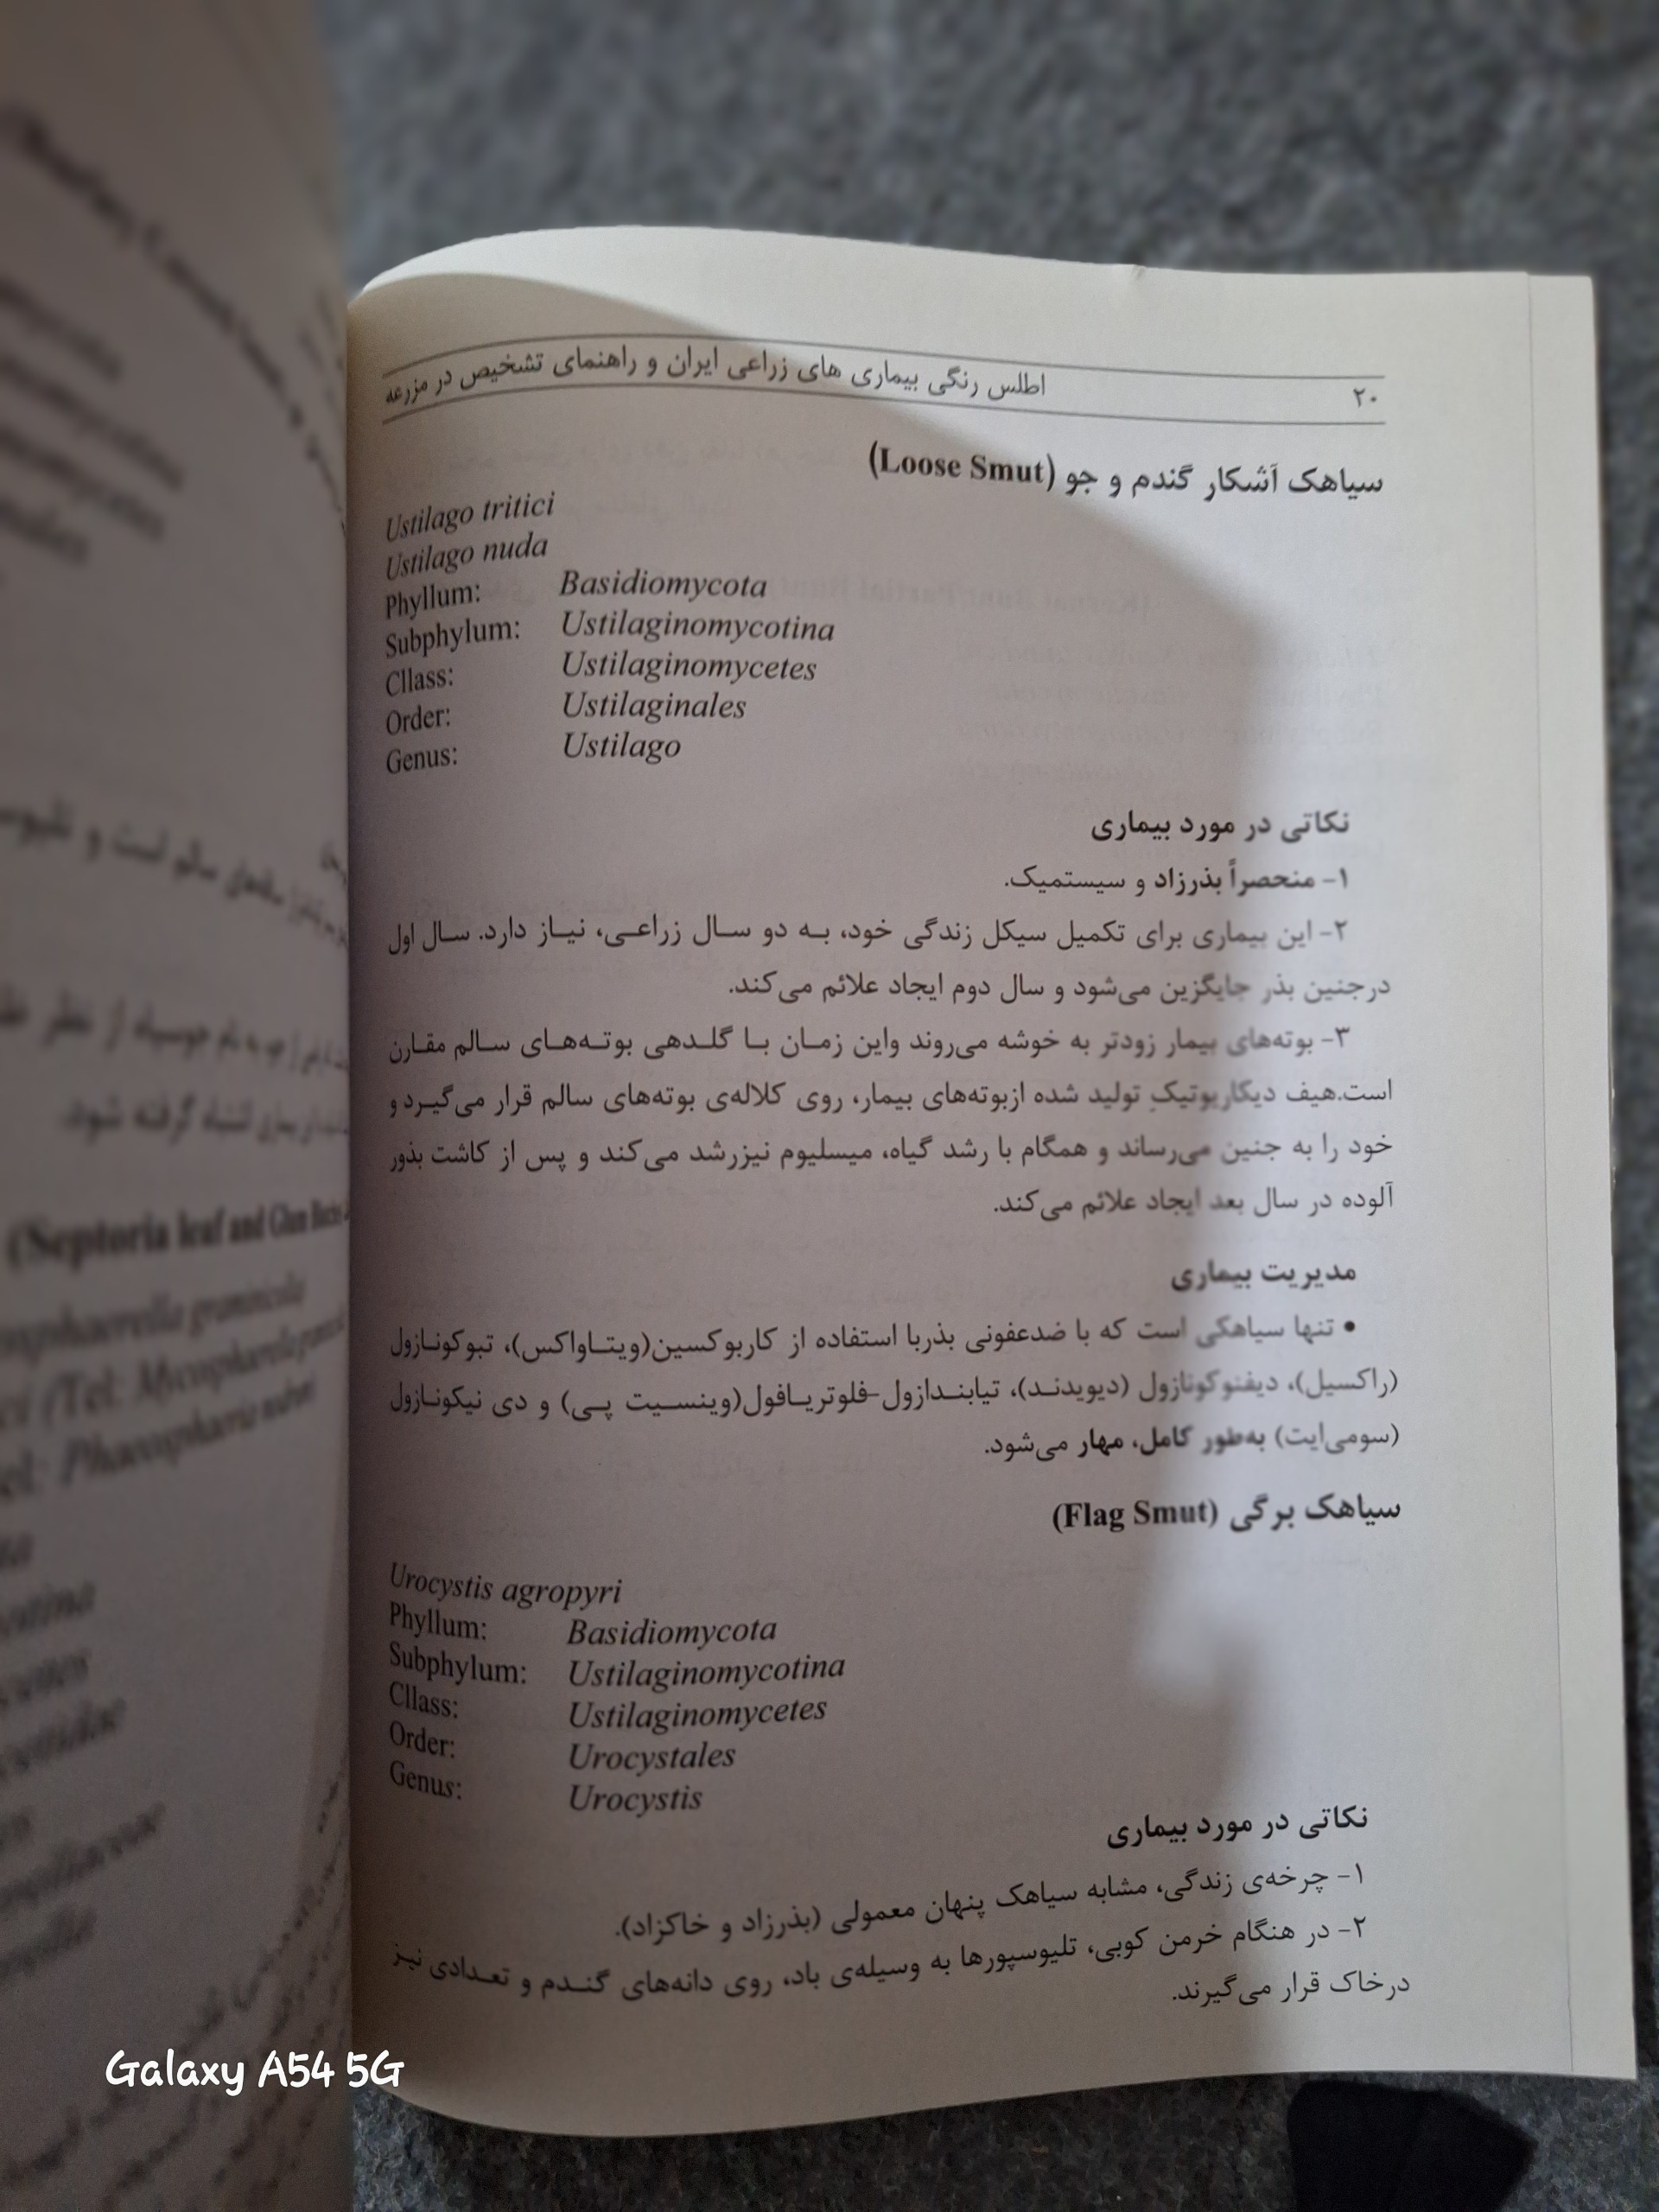 ۲۰ اطلس رنگی بیماری های زراعی ایران و راهنمای تشخیص در مزرعه
سیاهک آشکار گندم و جو (Loose Smut)
Ustilago tritici
Ustilago nuda
Phyllum: Basidiomycota
Subphylum: Ustilaginomycotina
Cllass: Ustilaginomycetes
Order: Ustilaginales
Genus: Ustilago
نکاتی در مورد بیماری
۱- منحصراً بذرزاد و سیستمیک.
۲- این بیماری برای تکمیل سیکل زندگی خود، به دو سال زراعی، نیاز دارد. سال اول
درجنین بذر جایگزین می‌شود و سال دوم ایجاد علائم می‌کند.
۳- بوته‌های بیمار زودتر به خوشه می‌روند واین زمان با گلدهی بوته‌های سالم مقارن
است.هیف دیکاریوتیکِ تولید شده ازبوته‌های بیمار، روی کلاله‌ی بوته‌های سالم قرار می‌گیرد و
خود را به جنین می‌رساند و همگام با رشد گیاه، میسلیوم نیزرشد می‌کند و پس از کاشت بذور
آلوده در سال بعد ایجاد علائم می‌کند.
مدیریت بیماری
• تنها سیاهکی است که با ضدعفونی بذربا استفاده از کاربوکسین(ویتاواکس)، تبوکونازول
(راکسیل)، دیفنوکونازول (دیویدند)، تیابندازول-فلوتریافول(وینسیت پی) و دی نیکونازول
(سومی‌ایت) به‌طور کامل، مهار می‌شود.
سیاهک برگی (Flag Smut)
Urocystis agropyri
Phyllum: Basidiomycota
Subphylum: Ustilaginomycotina
Cllass: Ustilaginomycetes
Order: Urocystales
Genus: Urocystis
نکاتی در مورد بیماری
۱- چرخه‌ی زندگی، مشابه سیاهک پنهان معمولی (بذرزاد و خاکزاد).
۲- در هنگام خرمن کوبی، تلیوسپورها به وسیله‌ی باد، روی دانه‌های گندم و تعدادی نیز
درخاک قرار می‌گیرند.
(Septoria leaf and Glum
Galaxy A54 5G